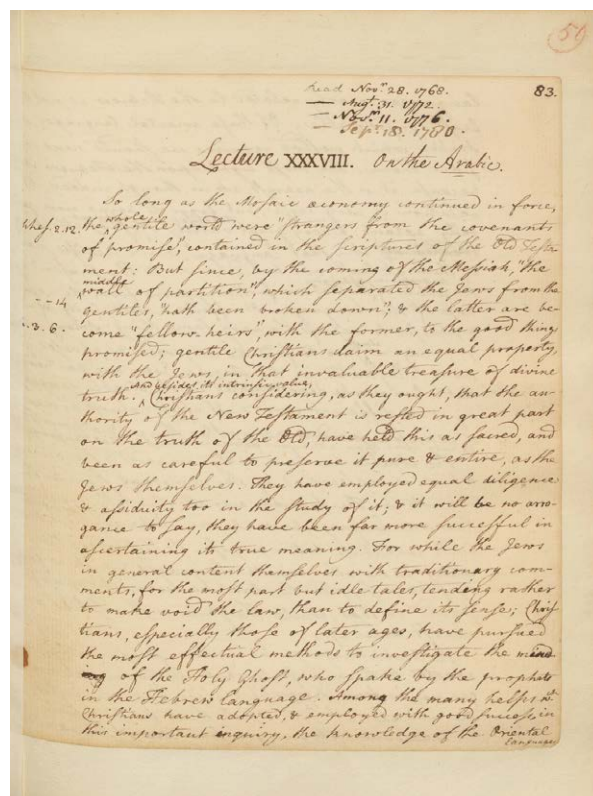 50
Read Novr. 28. 1768.
83.
— Augt. 31. 1772.
— Novr. 11. 1776.
— Sepr. 18. 1780.
Lecture XXXVIII. On the Arabic.
So long as the Mosaic œconomy continued in force,
Ephes. 2. 12. the whole gentile world were "strangers from the covenants
of promise", contained in the scriptures of the Old Testa-
ment: But since, by the coming of the Messiah, "the
-- 14 middle wall of partition", which separated the Jews from the
gentiles, "hath been broken down"; & the latter are be-
-. 3. 6. come "fellow-heirs", with the former, to the good things
promised; gentile Christians claim an equal property,
with the Jews, in that invaluable treasure of divine
truth. And besides its intrinsic value, Christians considering, as they ought, that the au-
thority of the New Testament is rested in great part
on the truth of the Old, have held this as sacred, and
been as careful to preserve it pure & entire, as the
Jews themselves. They have employed equal diligence
& assiduity too in the study of it; & it will be no arro-
gance to say, they have been far more successful in
ascertaining its true meaning. For while the Jews
in general content themselves with traditionary com-
ments, for the most part but idle tales, tending rather
to make void the law, than to define its sense; Chris-
tians, especially those of later ages, have pursued
the most effectual methods to investigate the mind
of the Holy Ghost, who spake by the prophets
in the Hebrew language. Among the many helps wc.
Christians have adopted, & employed with good success in
this important inquiry, the knowledge of the Oriental
Languages